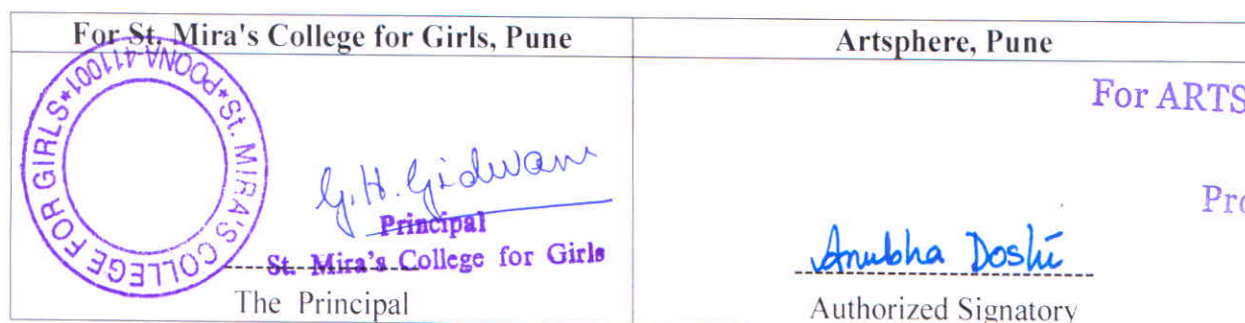 For St. Mira's College for Girls, Pune
Artsphere, Pune
St. MIRA'S COLLEGE FOR GIRLS*POONA 411001*
G.H. Gidwani
Principal
St. Mira's College for Girls
The Principal
For ARTS
Pro
Anubha Doshi
Authorized Signatory